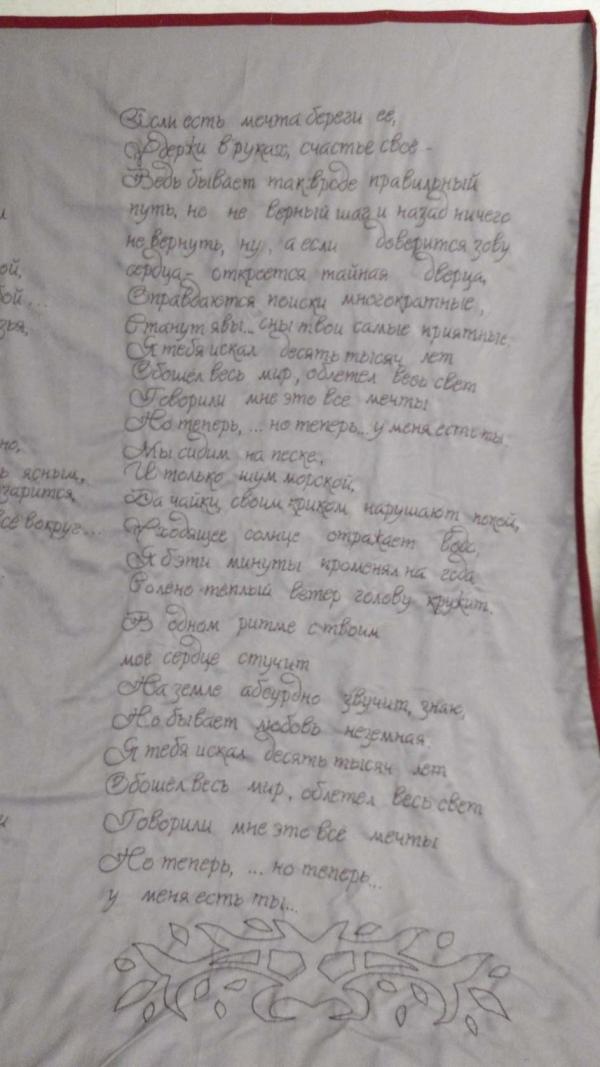 Если есть мечта береги её,
Удержи в руках, счастье своё -
Ведь бывает так вроде правильный
путь, но не верный шаг и назад ничего
не вернуть, ну, а если доверится зову
сердца - откроется тайная дверца,
Оправдаются поиски многократные,
Станут явь... сны твои самые приятные.
Я тебя искал десять тысяч лет
Обошёл весь мир, облетел весь свет
Говорили мне это всё мечты
Но теперь, ... но теперь... у меня есть ты
Мы сидим на песке,
И только шум морской,
Да чайки, своим криком нарушают покой,
Уходящее солнце отражает вода,
Я б эти минуты променял на года
Солено-тёплый ветер голову кружит.
В одном ритме с твоим
моё сердце стучит
На земле абсурдно звучит, знаю,
Но бывает любовь неземная.
Я тебя искал десять тысяч лет
Обошёл весь мир, облетел весь свет
Говорили мне это всё мечты
Но теперь, ... но теперь...
у меня есть ты...
ой,
бой...
зья,
но,
ь ясным,
зарится,
всё вокруг...